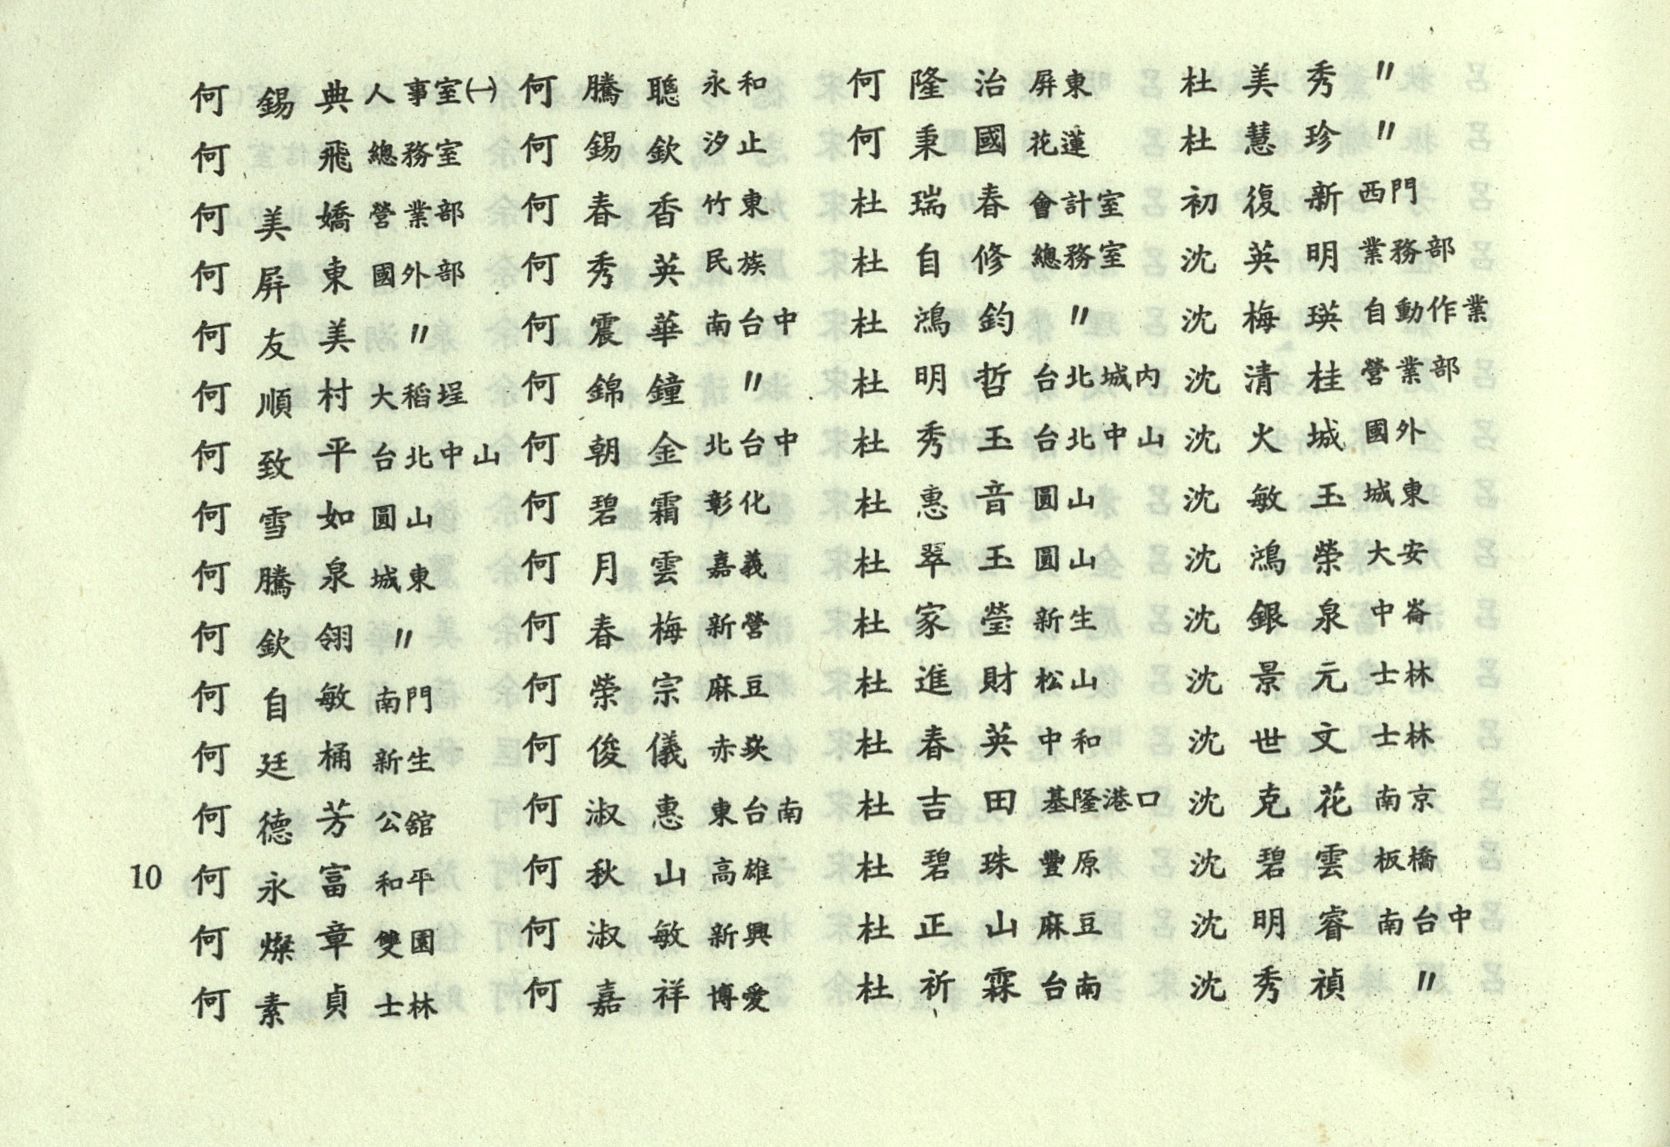 何錫典 人事室㈠
何飛 總務室
何美嬌 營業部
何屏東 國外部
何友美 〃
何順村 大稻埕
何致平 台北中山
何雪如 圓山
何騰泉 城東
何欽翎 〃
何自敏 南門
何廷桶 新生
何德芳 公舘
10 何永富 和平
何燦章 雙園
何素貞 士林
何騰聰 永和
何錫欽 汐止
何春香 竹東
何秀英 民族
何震華 南台中
何錦鐘 〃
何朝金 北台中
何碧霜 彰化
何月雲 嘉義
何春梅 新營
何榮宗 麻豆
何俊儀 赤崁
何淑惠 東台南
何秋山 高雄
何淑敏 新興
何嘉祥 博愛
何隆治 屏東
何秉國 花蓮
杜瑞春 會計室
杜自修 總務室
杜鴻鈞 〃
杜明哲 台北城內
杜秀玉 台北中山
杜惠音 圓山
杜翠玉 圓山
杜家瑩 新生
杜進財 松山
杜春英 中和
杜吉田 基隆港口
杜碧珠 豐原
杜正山 麻豆
杜祈霖 台南
杜美秀 〃
杜慧珍 〃
初復新 西門
沈英明 業務部
沈梅瑛 自動作業
沈清桂 營業部
沈火城 國外
沈敏玉 城東
沈鴻榮 大安
沈銀泉 中崙
沈景元 士林
沈世文 士林
沈克花 南京
沈碧雲 板橋
沈明睿 南台中
沈秀禎 〃